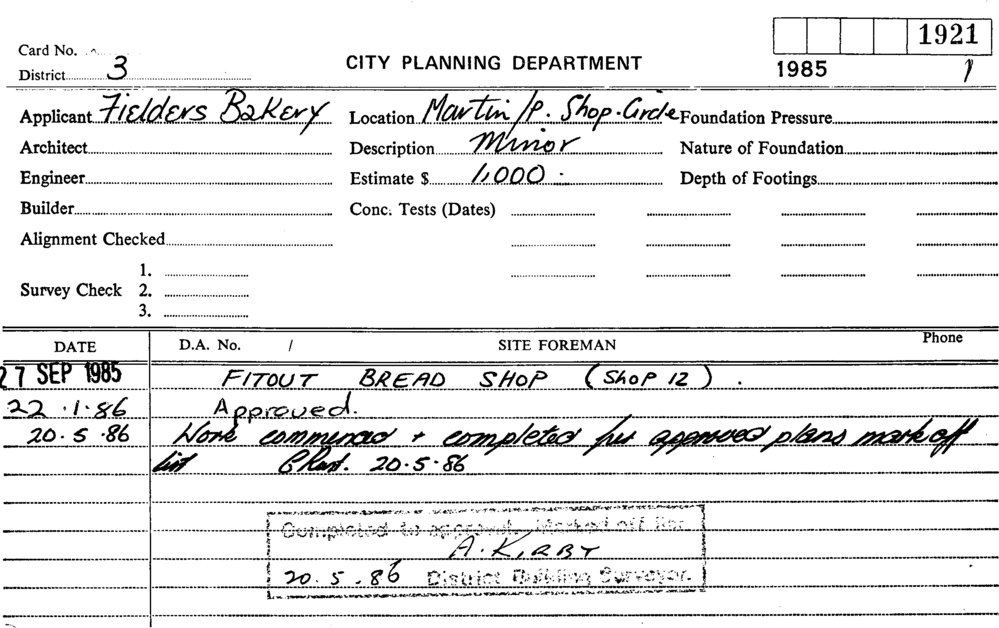 1921
Card No.
District 3
CITY PLANNING DEPARTMENT
1985 1
Applicant Fielders Bakery Location Martin /P. Shop. Circle Foundation Pressure
Architect Description Minor Nature of Foundation
Engineer Estimate $ 1,000 - Depth of Footings
Builder Conc. Tests (Dates)
Alignment Checked
1.
Survey Check 2.
3.
DATE D.A. No. / SITE FOREMAN Phone
27 SEP 1985 FITOUT BREAD SHOP (SHOP 12).
22.1.86 Approved.
20.5.86 Work commenced + completed per approved plans mark off
list 20.5.86
Completed to approval. Marked off list
A. KIRBY
20.5.86 District Building Surveyor.